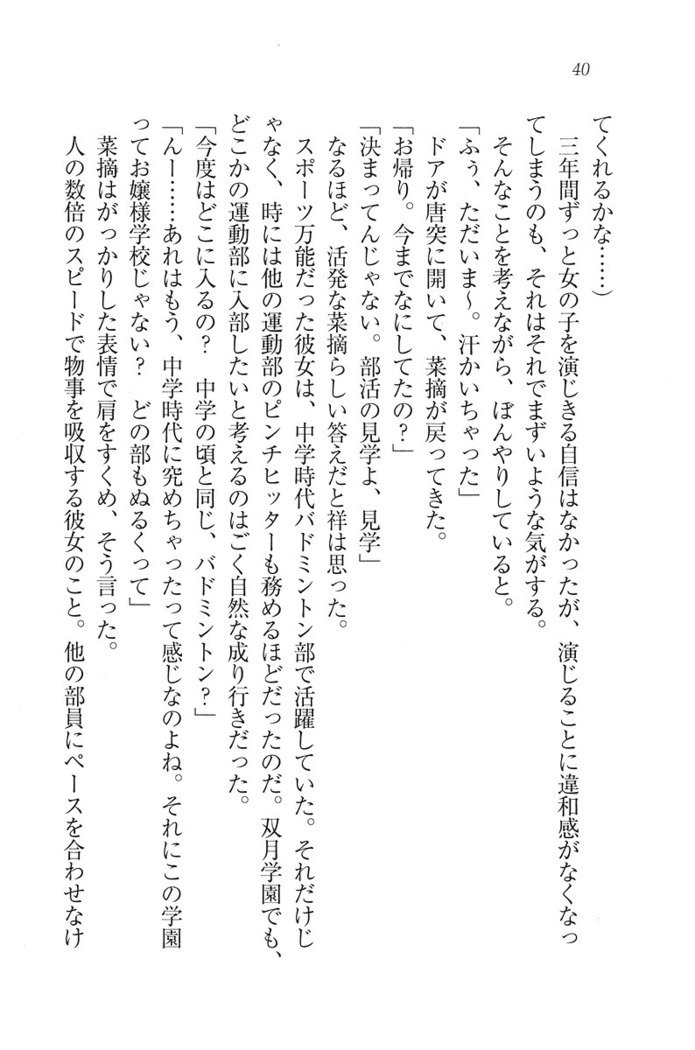 40
てくれるかな……）
　三年間ずっと女の子を演じきる自信はなかったが、演じることに違和感がなくなっ
てしまうのも、それはそれでまずいような気がする。
　そんなことを考えながら、ぼんやりしていると。
「ふぅ、ただいま～。汗かいちゃった」
　ドアが唐突に開いて、菜摘が戻ってきた。
「お帰り。今までなにしてたの？」
「決まってんじゃない。部活の見学よ、見学」
　なるほど、活発な菜摘らしい答えだと祥は思った。
　スポーツ万能だった彼女は、中学時代バドミントン部で活躍していた。それだけじ
ゃなく、時には他の運動部のピンチヒッターも務めるほどだったのだ。双月学園でも、
どこかの運動部に入部したいと考えるのはごく自然な成り行きだった。
「今度はどこに入るの？　中学の頃と同じ、バドミントン？」
「んー……あれはもう、中学時代に究めちゃったって感じなのよね。それにこの学園
ってお嬢様学校じゃない？　どの部もぬるくって」
　菜摘はがっかりした表情で肩をすくめ、そう言った。
　人の数倍のスピードで物事を吸収する彼女のこと。他の部員にペースを合わせなけ